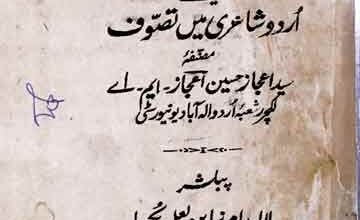 اُردو شاعری میں تصوّف
مصنّفۂ
سید اعجاز حسین اعجاز۔ ایم۔ اے
لکچرر شعبۂ اُردو الہ آباد یونیورسٹی
پبلشر